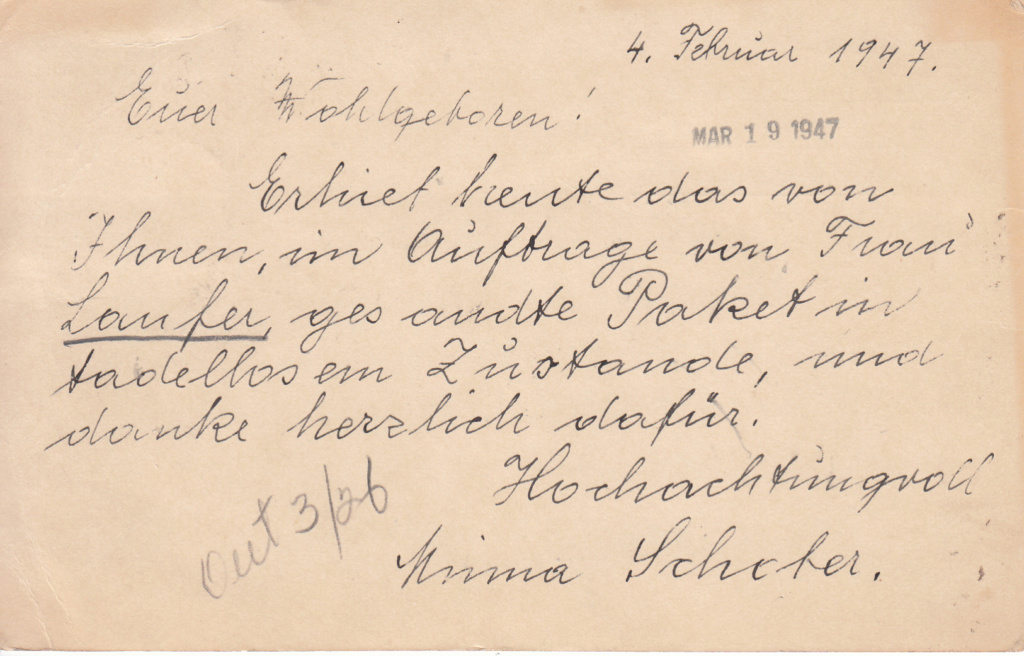 4. Februar 1947.
Euer Wohlgeboren!
MAR 19 1947
Erhielt heute das von
Ihnen, im Auftrage von Frau
Laufer, gesandte Paket in
tadellosem Zustande, und
danke herzlich dafür.
Hochachtungvoll
out 3/26
Minna Schober.